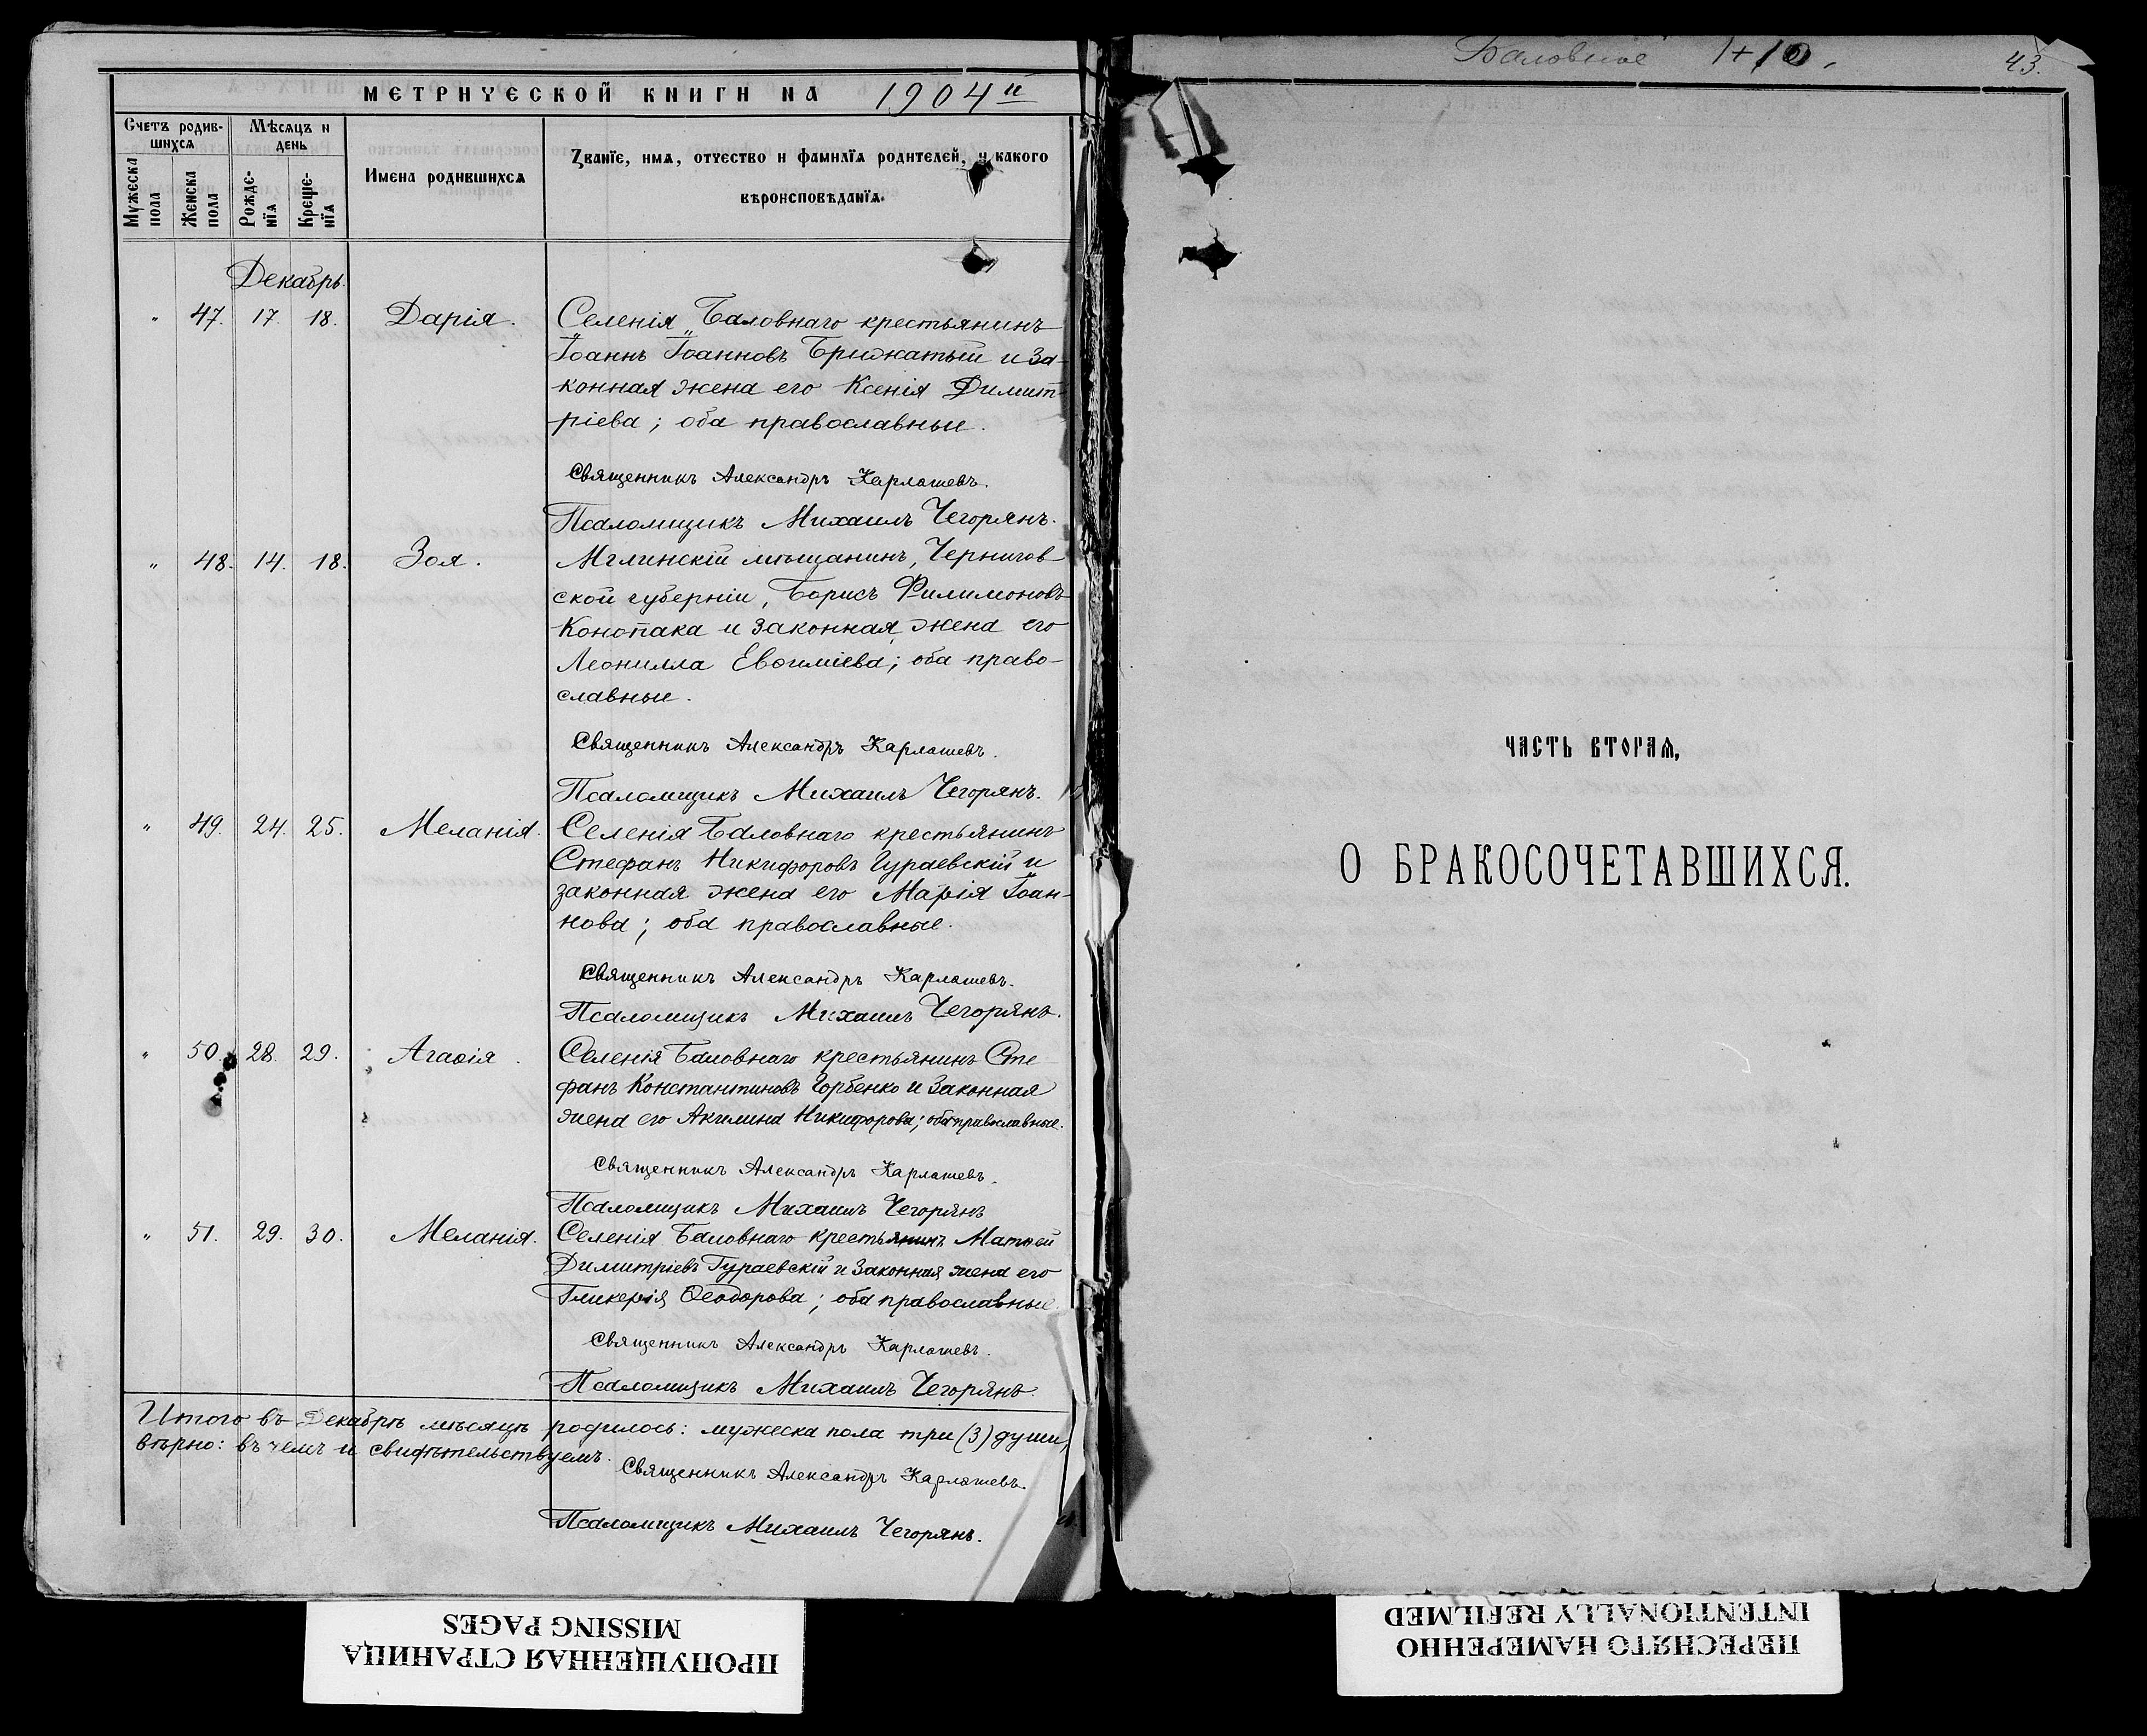 МЕТРИЧЕСКОЙ КНИГИ НА 1904й
Счетъ родив-
шихся
Мѣсяцъ и
день
Имена родившихся
Званїе, имя, отчество и фамилїя родителей, и какого
вѣроисповѣданїя.
Мужеска
пола
Женска
пола
Рожде-
нїя
Креще-
нїя
Декабрь.
" 47. 17. 18. Дарія. Селенія „Баловнаго крестьянинъ
Іоаннъ Іоанновъ Брижатый и за-
конная жена его Ксенія Димит-
ріева; оба православные.
Священникъ Александръ Карлашевъ.
Псаломщикъ Михаилъ Чегорянъ.
" 48. 14. 18. Зоя. Мглинскій мѣщанинъ, Чернигов
ской губерніи, Борисъ Филимоновъ
Конопака и законная жена его
Леонилла Евѳиміева; оба право-
славные.
Священникъ Александръ Карлашевъ.
Псаломщикъ Михаилъ Чегорянъ.
" 49. 24. 25. Меланія. Селенія Баловнаго крестьянинъ
Стефанъ Никифоровъ Гураевскій и
законная жена его Марія Іоан-
нова; оба православные.
Священникъ Александръ Карлашевъ.
Псаломщикъ Михаилъ Чегорянъ.
" 50. 28. 29. Агаѳія. Селенія Баловнаго крестьянинъ Сте
фанъ Константиновъ Горбенко и законная
жена его Акилина Никифорова; оба православные.
Священникъ Александръ Карлашевъ.
Псаломщикъ Михаилъ Чегорянъ
" 51. 29. 30. Меланія. Селенія Баловнаго крестьянинъ Матѳей
Димитріевъ Гураевскій и законная жена его
Гликерія Ѳеодорова; оба православные.
Священникъ Александръ Карлашевъ.
Псаломщикъ Михаилъ Чегорянъ.
Итого въ Декабрѣ мѣсяцѣ родилось: мужеска пола три (3) души,
вѣрно: въ чемъ и свидѣтельствуемъ.
Священникъ Александръ Карлашевъ.
Псаломщикъ Михаилъ Чегорянъ.
ПРОПУЩЕННАЯ СТРАНИЦА
MISSING PAGES
Баловное 1+10.
43.
ЧАСТЬ ВТОРАЯ,
О БРАКОСОЧЕТАВШИХСЯ.
ПЕРЕСНЯТО НАМЕРЕННО
INTENTIONALLY REFILMED